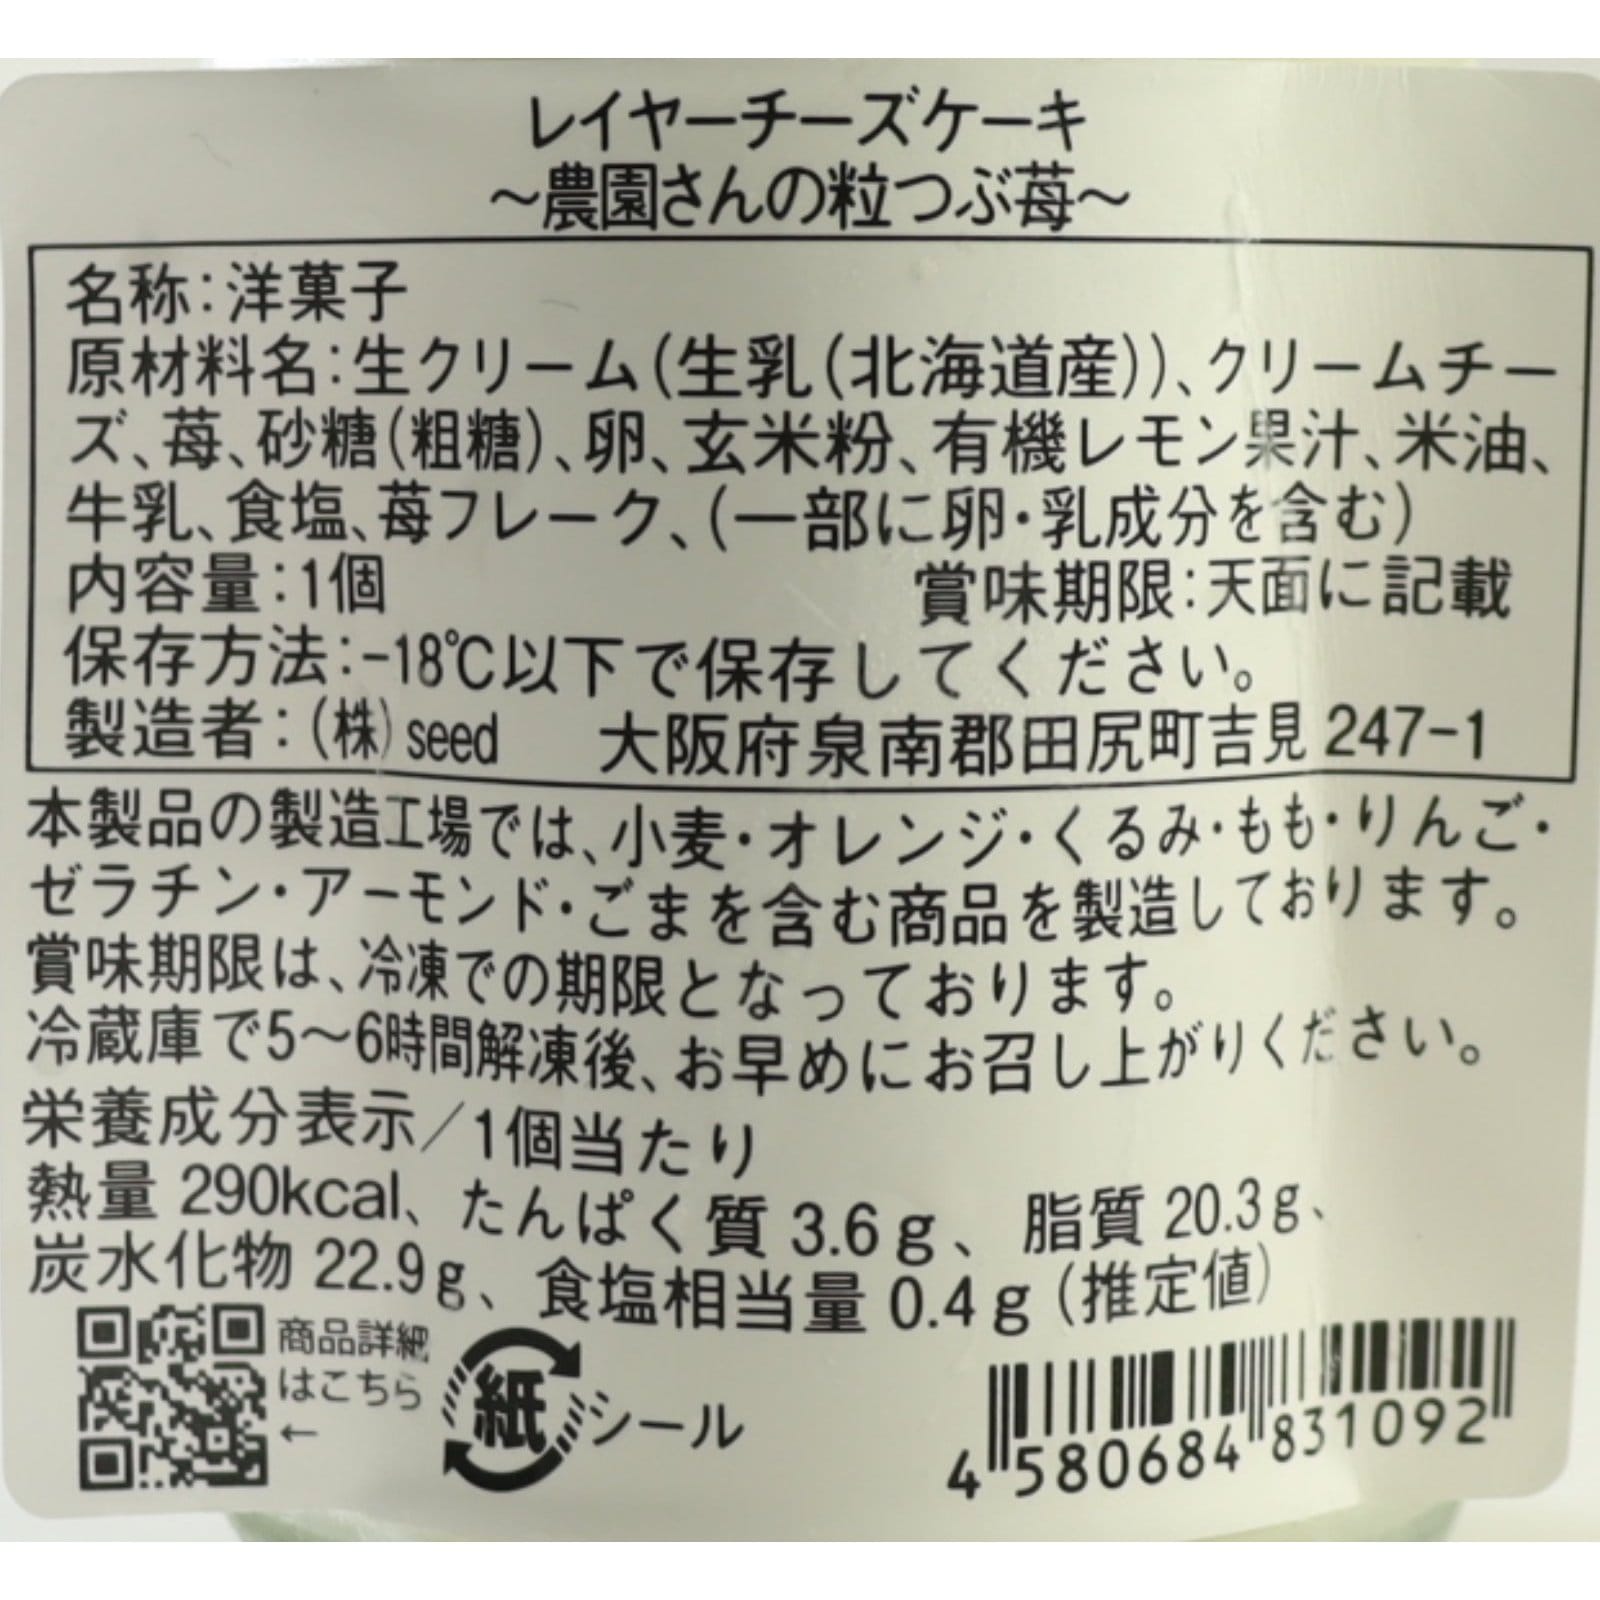 レイヤーチーズケーキ
～農園さんの粒つぶ苺～
名称：洋菓子
原材料名：生クリーム（生乳（北海道産））、クリームチー
ズ、苺、砂糖（粗糖）、卵、玄米粉、有機レモン果汁、米油、
牛乳、食塩、苺フレーク、（一部に卵・乳成分を含む）
内容量：1個 賞味期限：天面に記載
保存方法：-18℃以下で保存してください。
製造者：（株）seed 大阪府泉南郡田尻町吉見 247-1
本製品の製造工場では、小麦・オレンジ・くるみ・もも・りんご・
ゼラチン・アーモンド・ごまを含む商品を製造しております。
賞味期限は、冷凍での期限となっております。
冷蔵庫で5～6時間解凍後、お早めにお召し上がりください。
栄養成分表示／1個当たり
熱量 290kcal、たんぱく質 3.6g、脂質 20.3g、
炭水化物 22.9g、食塩相当量 0.4g（推定値）
商品詳細
はこちら
←
紙 シール
4580684831092